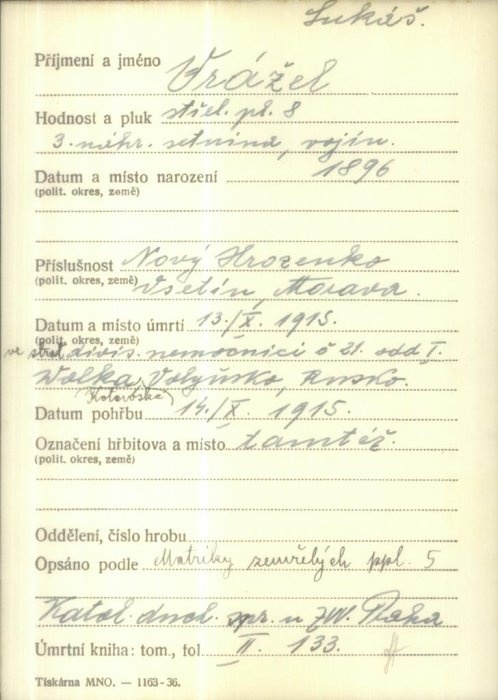 Lukáš.
Příjmení a jméno Vrážel
Hodnost a pluk střel. pl. 8
3. náhr. setnina, vojín.
Datum a místo narození 1896
(polit. okres, země)
Příslušnost Nový Hrozenko
(polit. okres, země) Vsetín, Morava.
Datum a místo úmrtí 13./X. 1915.
ve střel divis. nemocnici č 21. odd I.
Wolka Volyňsko, Rusko.
Datum pohřbu 14./X. 1915.
Označení hřbitova a místo tamtéž.
(polit. okres, země)
Oddělení, číslo hrobu
Opsáno podle Matriky zemřelých ppl. 5
Katol. duch. spr. u ZVV. Praha
Úmrtní kniha: tom., fol II. 133.
Tiskárna MNO. — 1163-36.